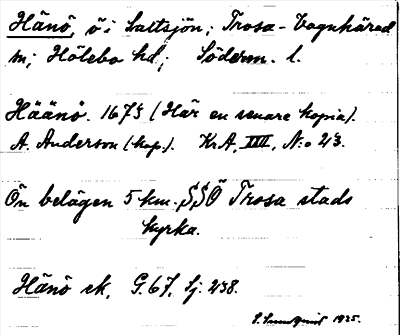 Hänö, ö i Saltsjön; Trosa-Vagnhärad
sn; Hölebo hd; Söderm. l.
Häänö. 1675 (Här en senare kopia).
A. Anderson (kop.). KrA, XIII, N:o 23.
Ön belägen 5 km. SSÖ Trosa stads
kyrka.
Hänö sk, G. 67, Sj. 238.
S. Sundquist 1935.